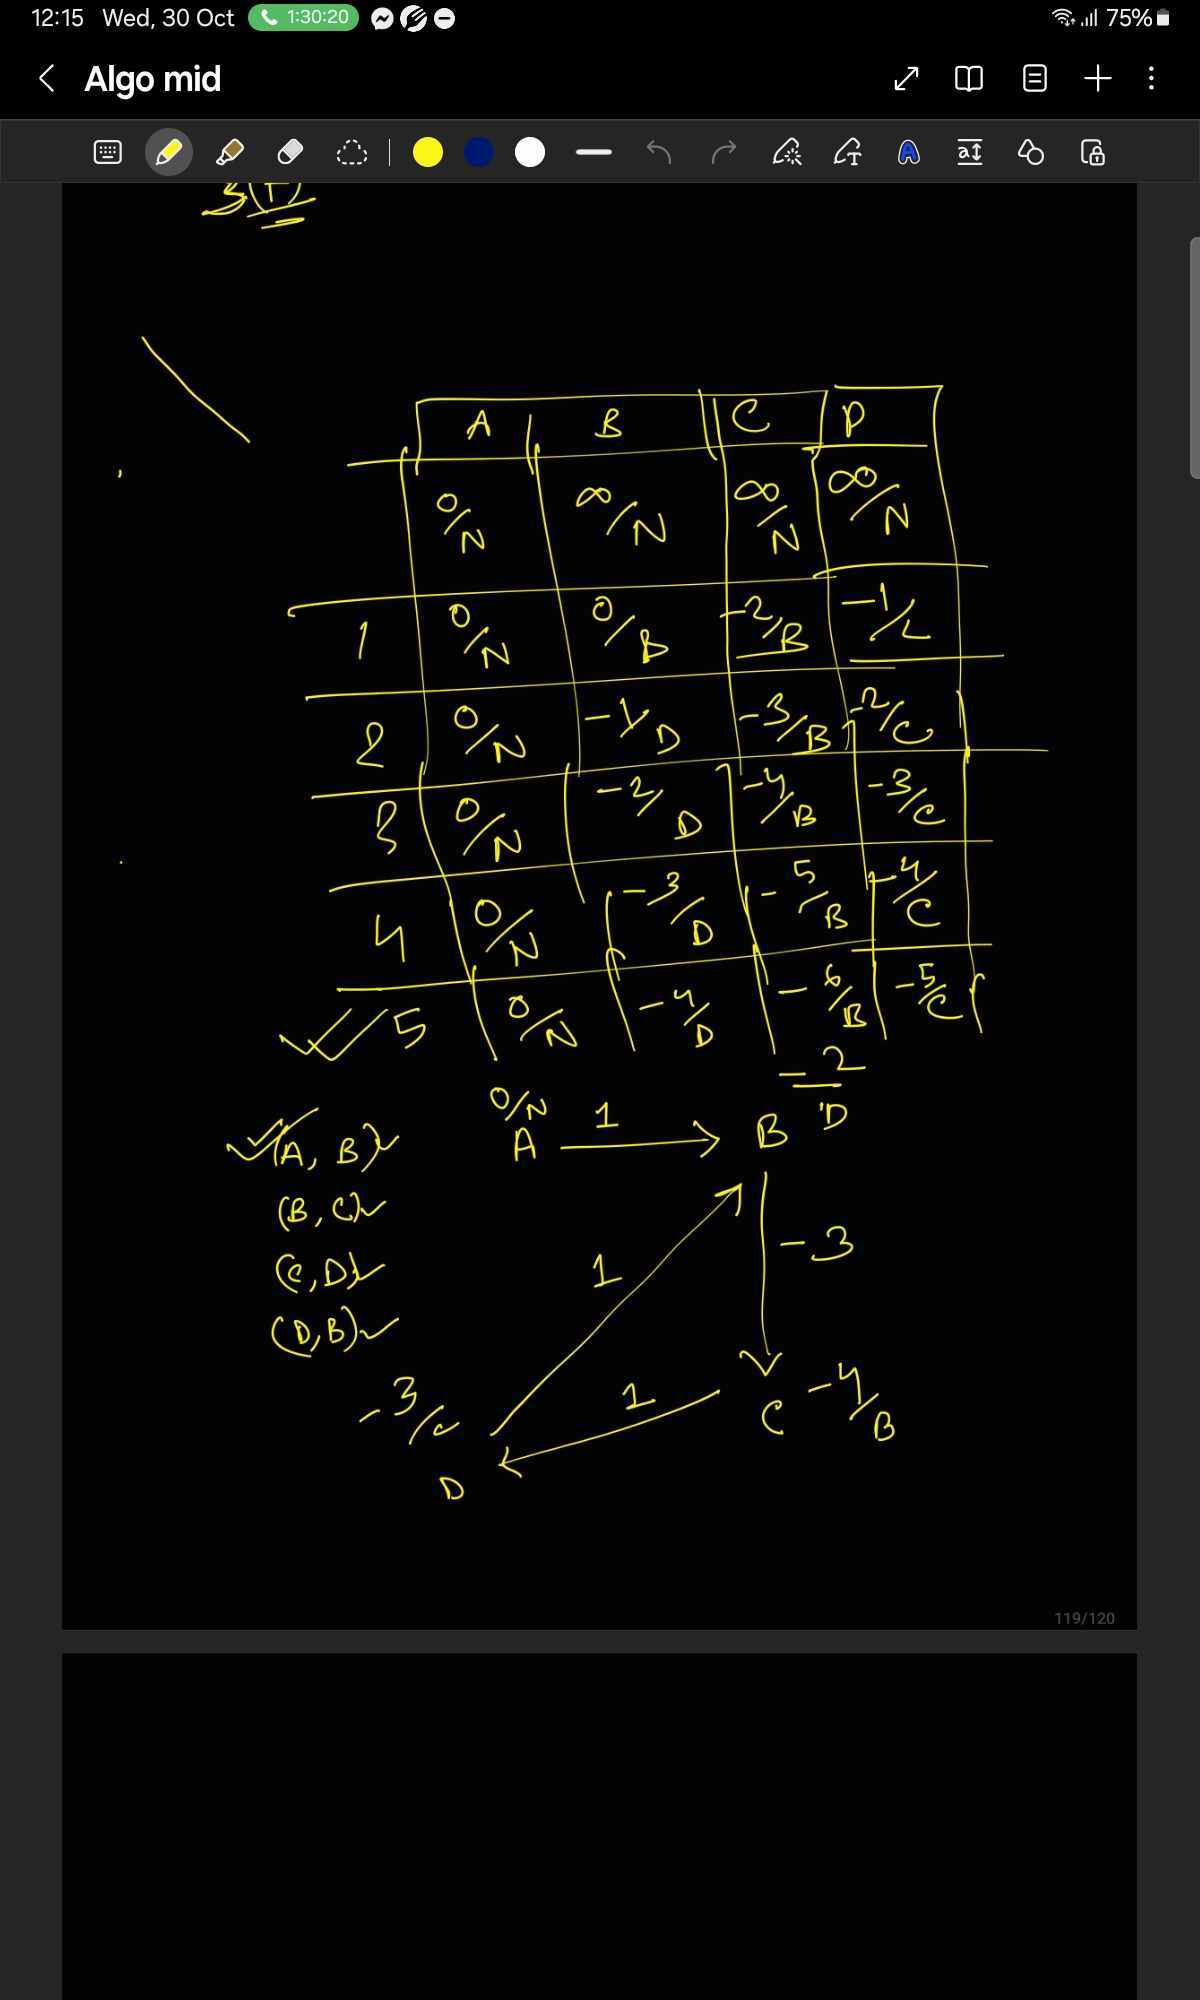 12:15 Wed, 30 Oct 1:30:20 75%
Algo mid
A B C D
0/N ∞/N ∞/N ∞/N
1 0/N 0/B -2/B -1/C
2 0/N -1/D -3/B -2/C
3 0/N -2/D -4/B -3/C
4 0/N -3/D -5/B -4/C
✓ 5 0/N -4/D -6/B -5/C
-2
0/N 1 D
(A, B) A B
(B, C)
-3
(C, D) 1
(D, B)
-3/C 1 C -4/B
D
119/120